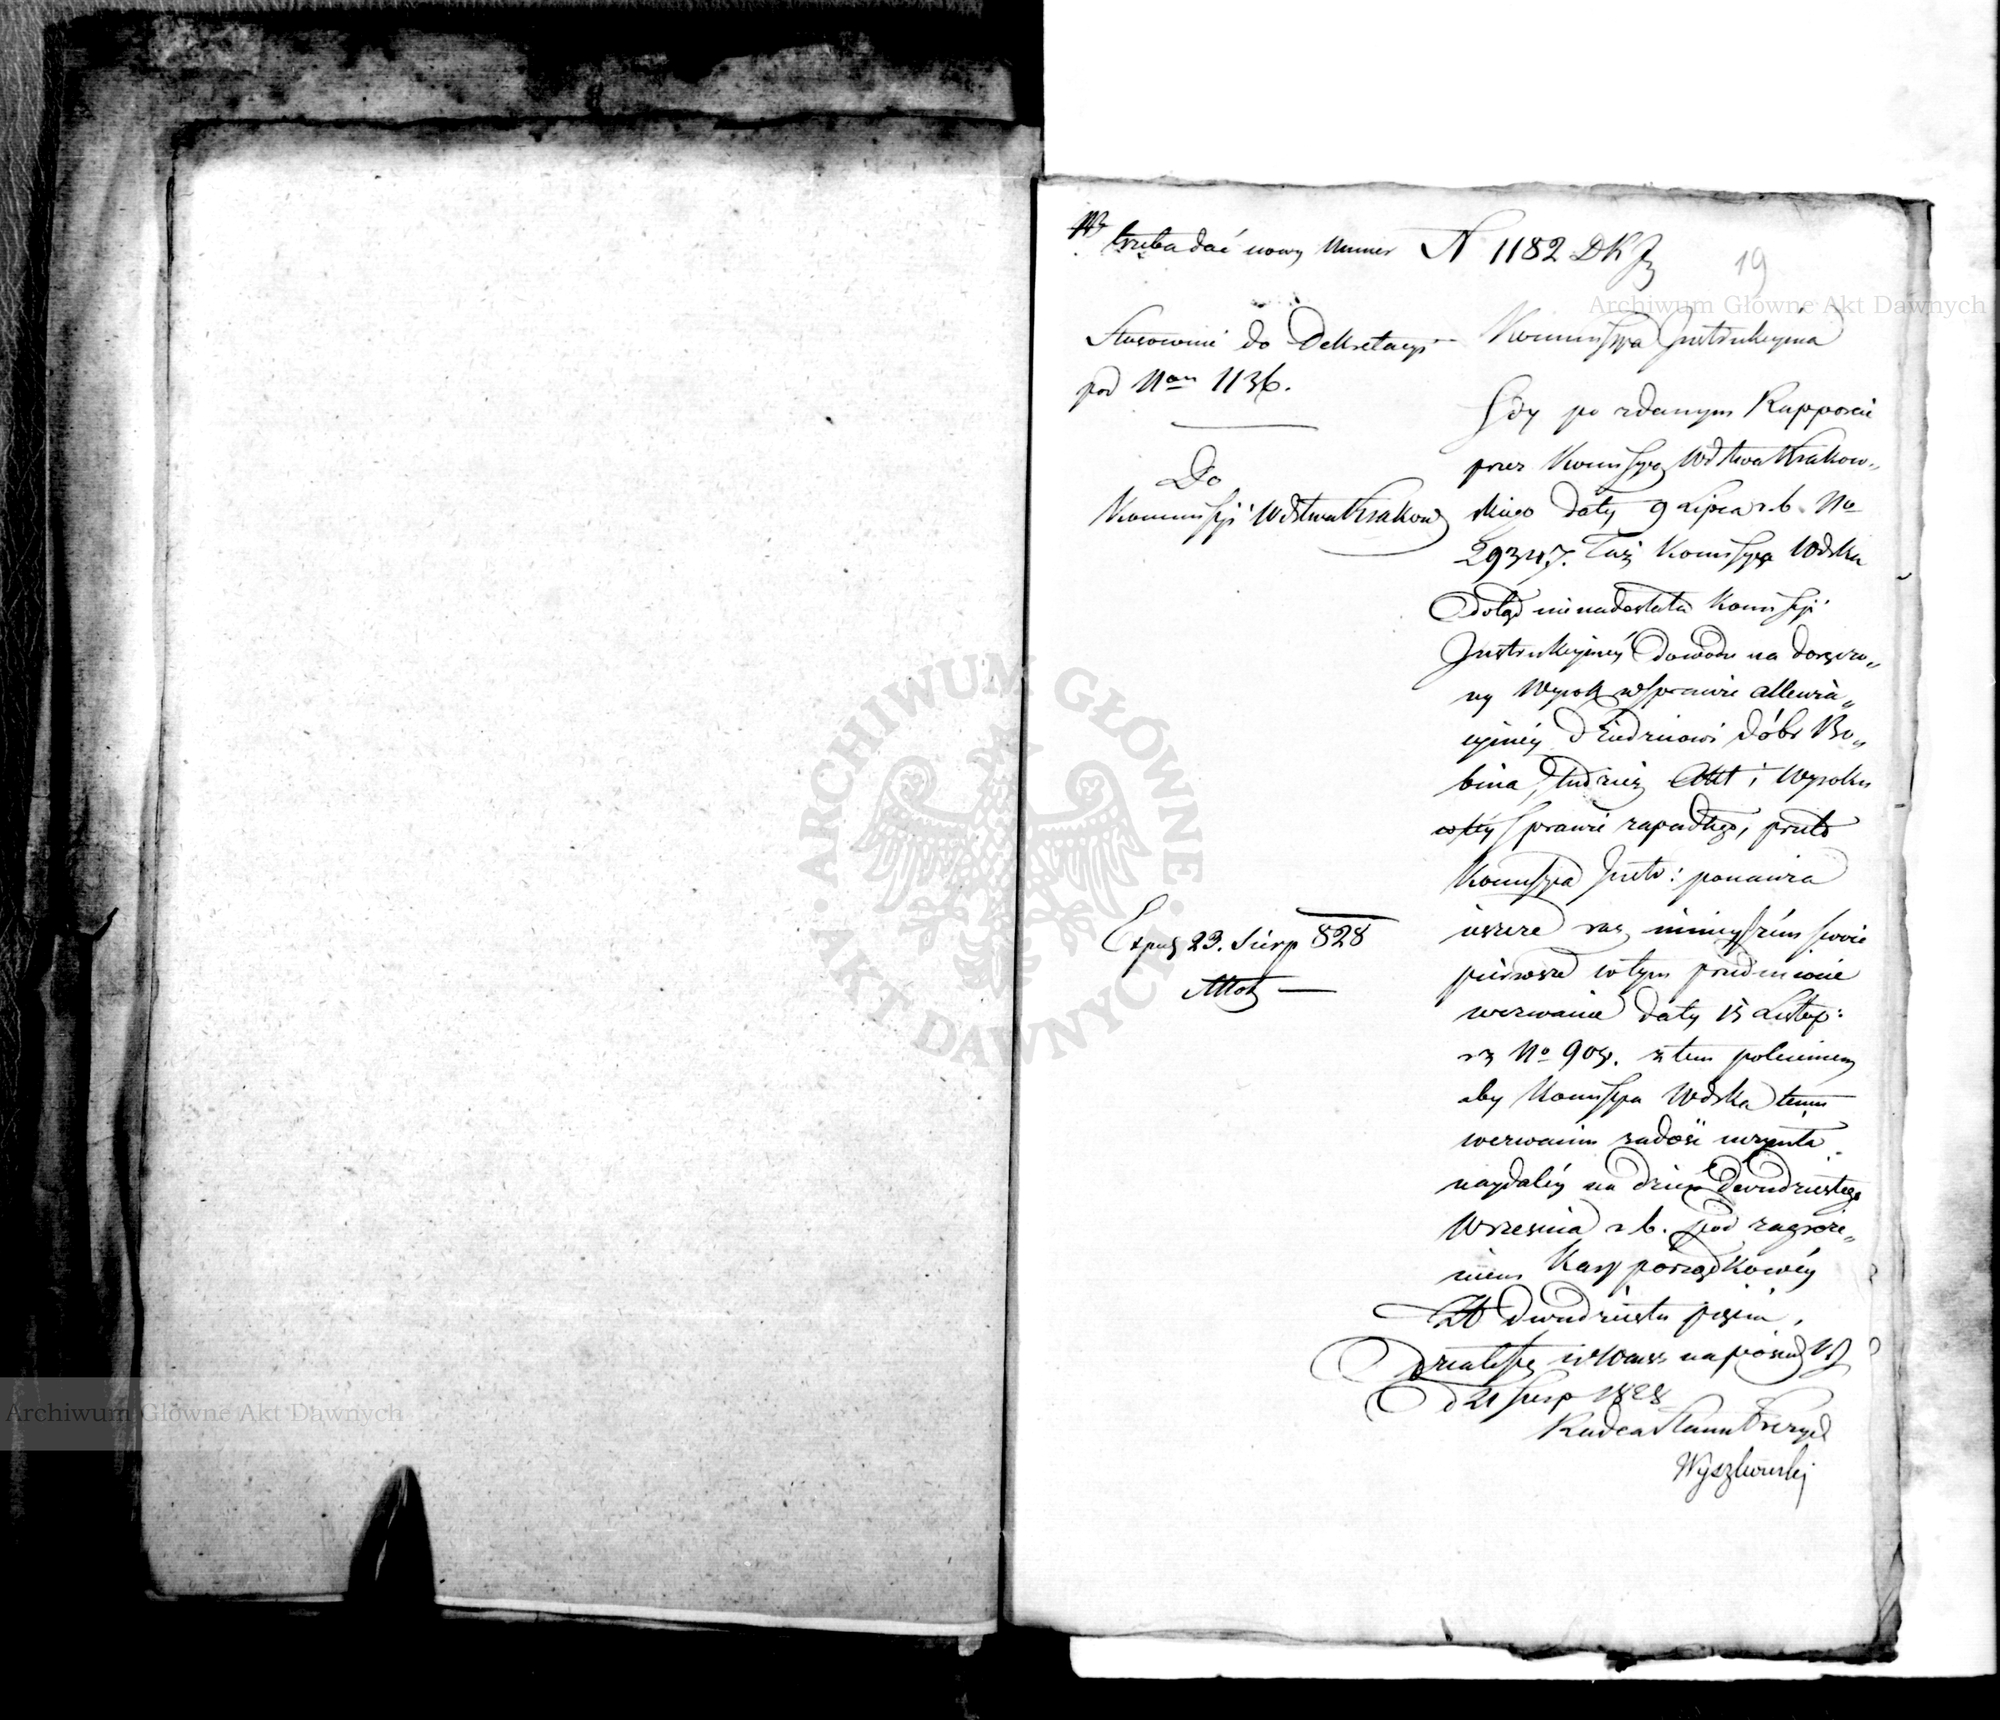 trzeba dać nowy Numer N 1182 DKJ
19
Stosownie do Dekretacyi
pod Nem 1136.
Do
Kommissyi Wdztwa Krakow
Exped 23. Sierp 828
Kommissya Instrukcyina
Gdy po zdanym Rapporcie
przez Kommissyą Wdztwa Krakow„
skiego daty 9 Lipca r. b. No
29347. Taż Kommissya Wdzka
dotąd nienadesłała Kommissyi
Instrukcyiney dowodu na doręczo„
ny Wyrok w sprawie allewia„
cyiney Dziedzicowi dóbr Bo„
bina, tudzież Akt i Wyroku
w tey sprawie zapadłego, przeto
Kommissya Instr: ponawia
ieszcze raz ninieyszém swoie
pierwsze w tym przedmiocie
wezwanie daty 15 Listop:
rz No 905. z tem poleceniem
aby Kommissya Wdzka temu
wezwaniu zadość uczyniła
naydaléy na dzień dwudziestego
Września r. b. pod zagroże„
niem Kary porządkowéy
Zł dwudziestu pięciu.
Działo się w Warsz na posiedz
d 21 Sierp 1828
Radca Stanu Prezyd
Wyszkowski
Archiwum Główne Akt Dawnych
ARCHIWUM GŁÓWNE
AKT DAWNYCH
Archiwum Główne Akt Dawnych